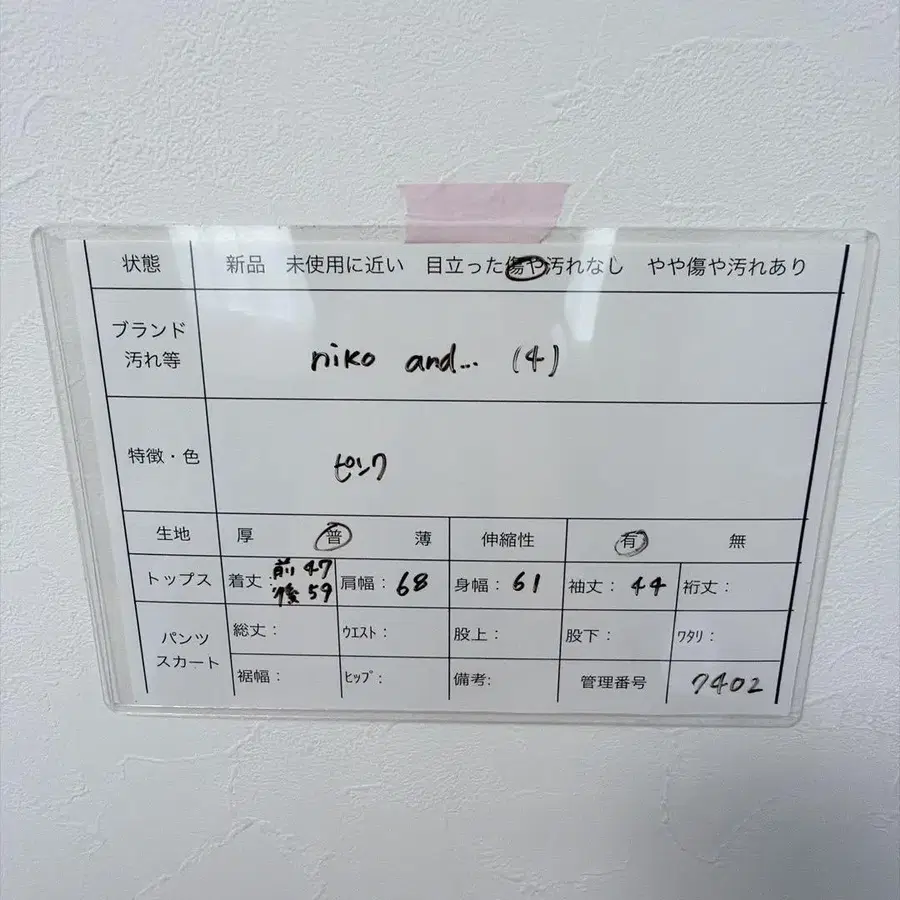 状態 新品 未使用に近い 目立った傷や汚れなし やや傷や汚れあり
ブランド
汚れ等
niko and... (4)
特徴・色
ピンク
生地 厚 普 薄 伸縮性 有 無
トップス 着丈: 前47 後59 肩幅: 68 身幅: 61 袖丈: 44 裄丈:
パンツ
スカート
総丈: ウエスト: 股上: 股下: ワタリ:
裾幅: ヒップ: 備考: 管理番号 7402